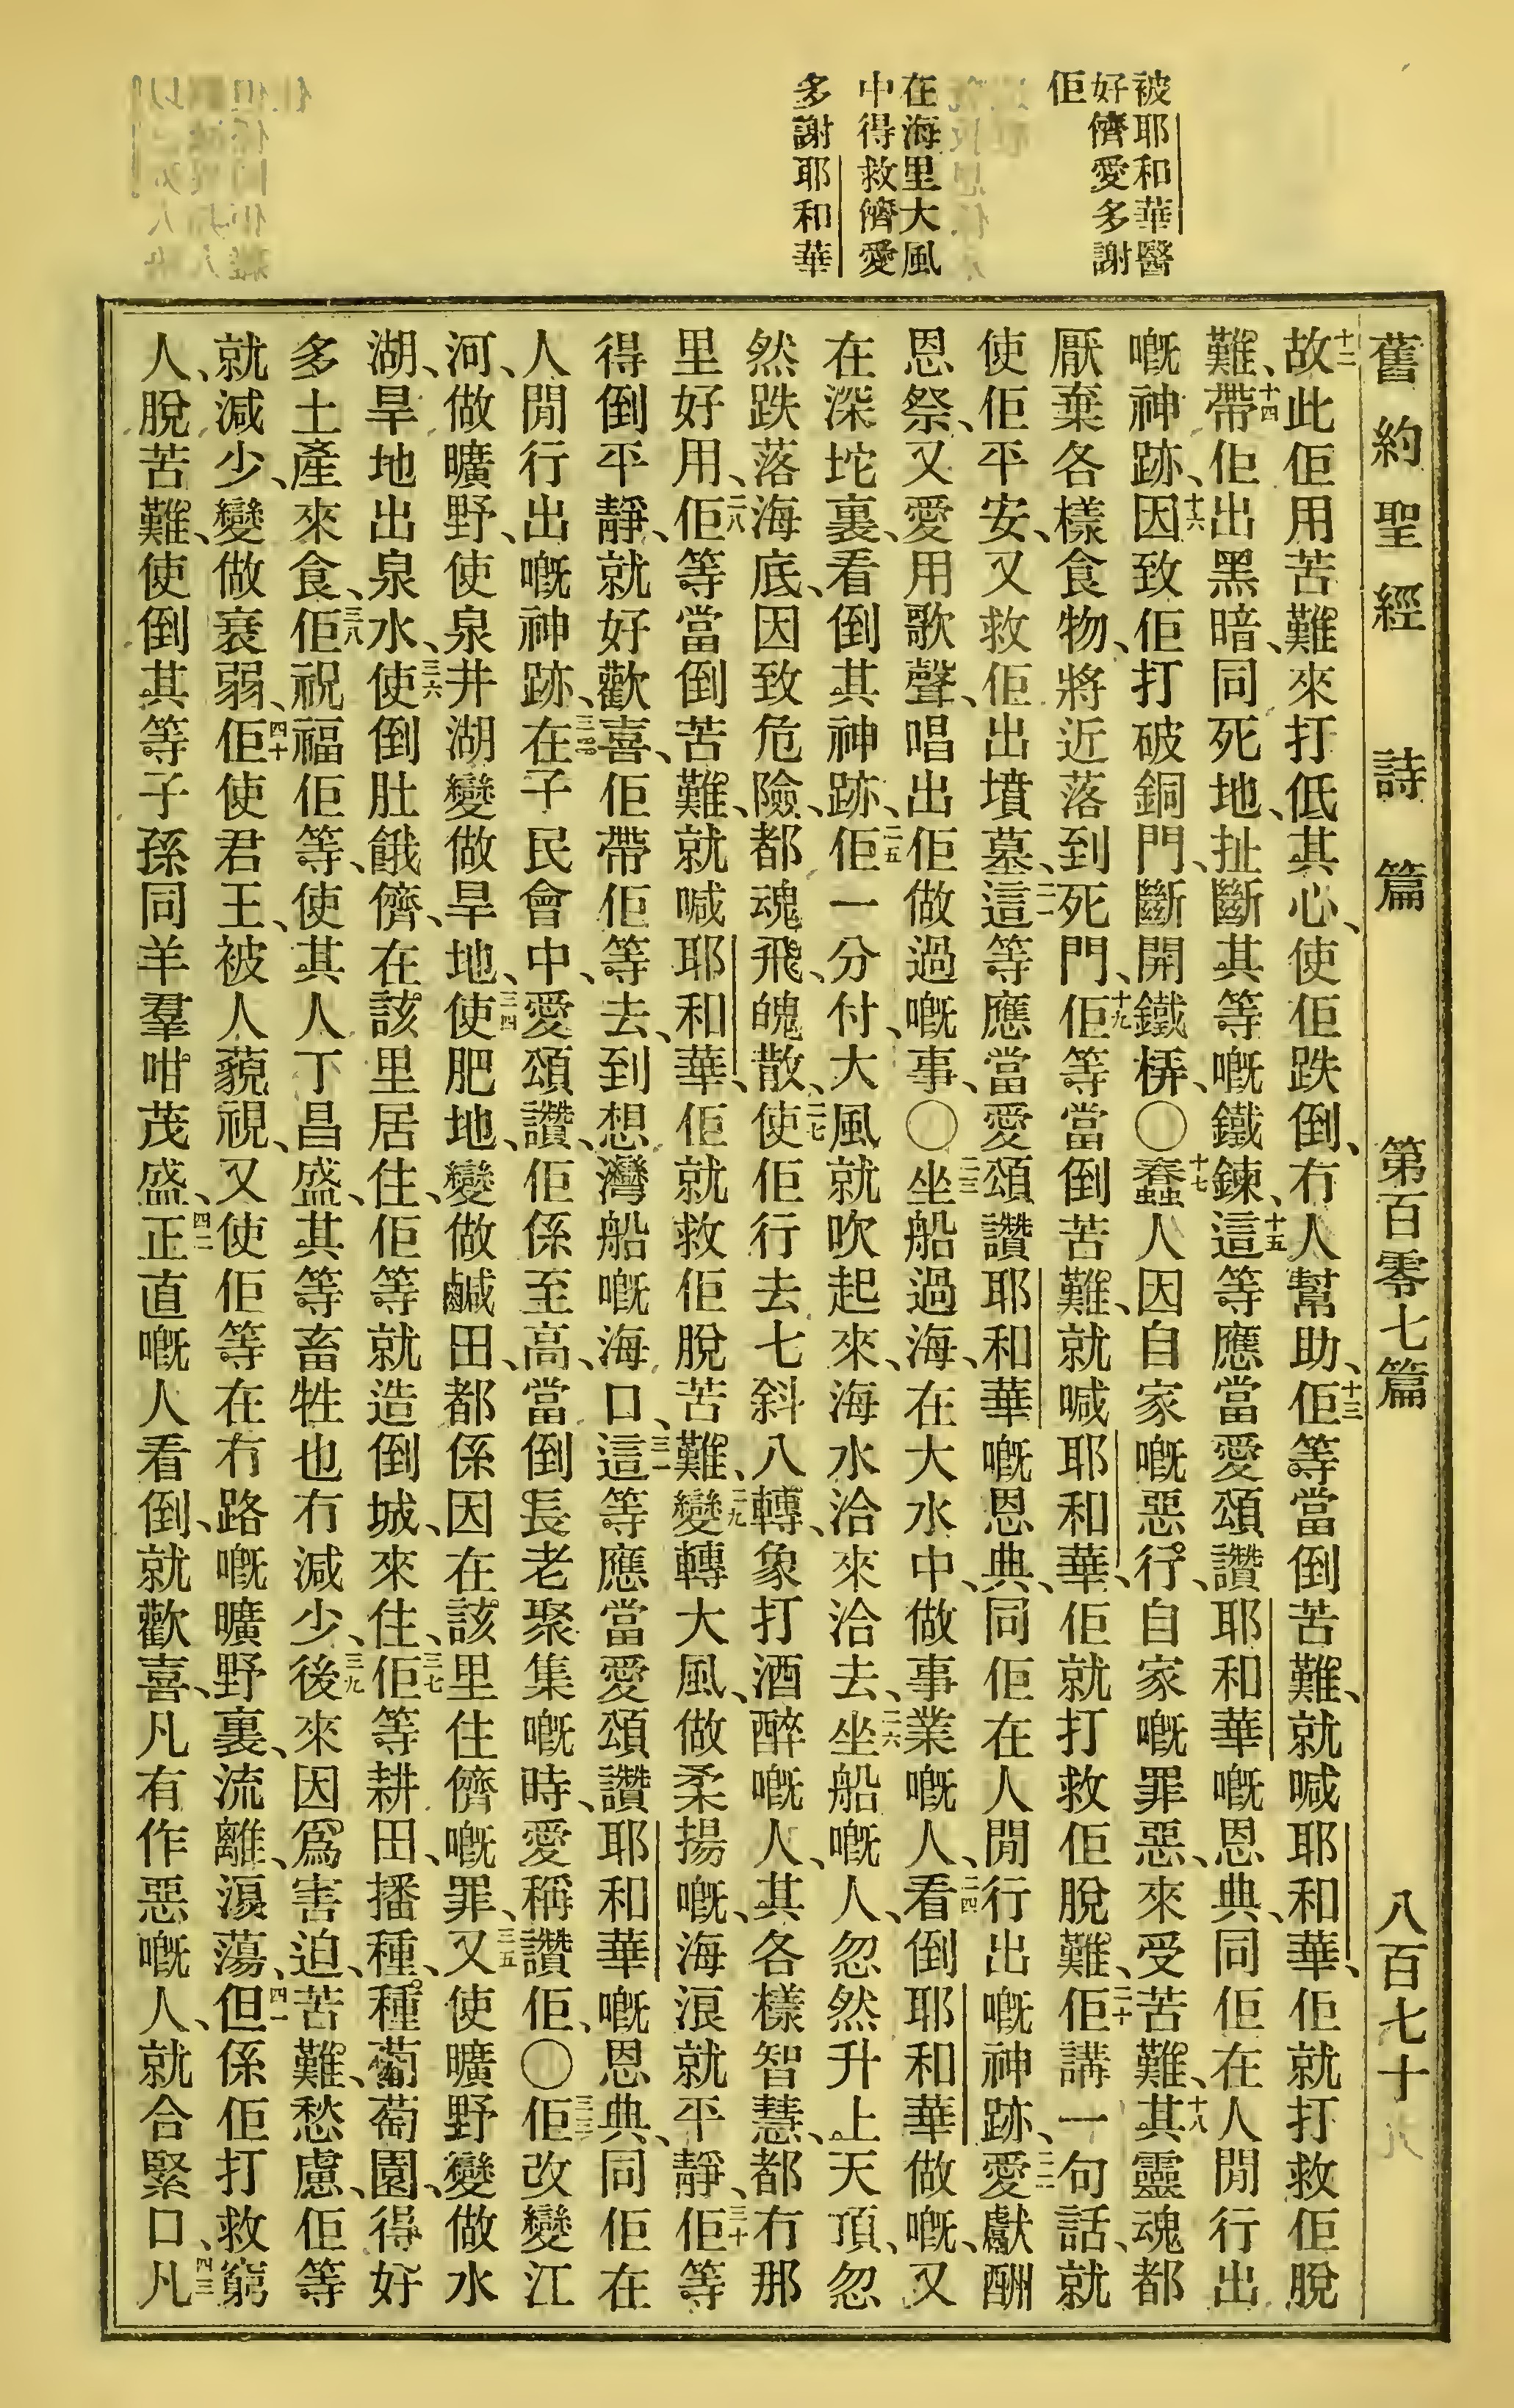 被耶和華醫
好儕愛多謝
佢
在海里大風
中得救儕愛
多謝耶和華
舊約聖經 詩篇 第百零七篇 八百七十九
十二故此佢用苦難來打低其心、使佢跌倒、冇人幫助、十三佢等當倒苦難、就喊耶和華、佢就打救佢脫
難、十四帶佢出黑暗、同死地、扯斷其等嘅鐵鍊、十五這等應當愛頌讚耶和華嘅恩典、同佢在人間行出
嘅神跡、十六因致佢打破銅門、斷開鐵栟、〇十七蠢人因自家嘅惡行、自家嘅罪惡、來受苦難、十八其靈魂都
厭棄各樣食物、將近落到死門、十九佢等當倒苦難、就喊耶和華、佢就打救佢脫難、二十佢講一句話、就
使佢平安、又救佢出墳墓、二一這等應當愛頌讚耶和華嘅恩典、同佢在人間行出嘅神跡、二二愛獻酬
恩祭、又愛用歌聲、唱出佢做過嘅事、〇二三坐船過海、在大水中、做事業嘅人、二四看倒耶和華做嘅、又
在深坨裏、看倒其神跡、二五佢一分付、大風就吹起來、海水洽來洽去、二六坐船嘅人、忽然升上天頂、忽
然跌落海底、因致危險、都魂飛、魄散、二七使佢行去七斜八轉、象打酒醉嘅人、其各樣智慧、都冇那
里好用、二八佢等當倒苦難、就喊耶和華、佢就救佢脫苦難、二九變轉大風、做柔揚嘅、海浪就平靜、三十佢等
得倒平靜、就好歡喜、佢帶佢等去、到想灣船嘅海口、三一這等應當愛頌讚耶和華嘅恩典、同佢在
人間行出嘅神跡、三二在子民會中、愛頌讚、佢係至高、當倒長老聚集嘅時、愛稱讚佢、〇三三佢改變江
河、做曠野、使泉井湖變做旱地、三四使肥地、變做鹹田、都係因在該里住儕嘅罪、三五又使曠野變做水
湖、旱地出泉水、三六使倒肚餓儕、在該里居住、佢等就造倒城、來住、三七佢等耕田、播種、種葡萄園、得好
多土產來食、三八佢祝福佢等、使其人丁昌盛、其等畜牲也冇減少、三九後來因爲害迫、苦難、愁慮、佢等
就減少、變做衰弱、四十佢使君王、被人藐視、又使佢等在冇路嘅曠野裏、流離、浪蕩、四一但係佢打救窮
人、脫苦難、使倒其等子孫同羊羣咁茂盛、四二正直嘅人看倒、就歡喜、凡有作惡嘅人、就合緊口、四三凡